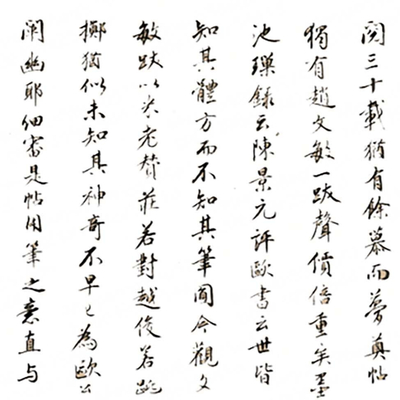 閱三十載猶有餘慕而夢真帖
獨有趙文敏一跋聲價倍重矣墨
池璅錄云陳景元評歐書云世皆
知其體方而不知其筆圓今觀文
敏跋以米老贊莊若對越俊若跳
擲猶似未知其神奇不早已為歐公
闡幽耶細審是帖用筆之意直與